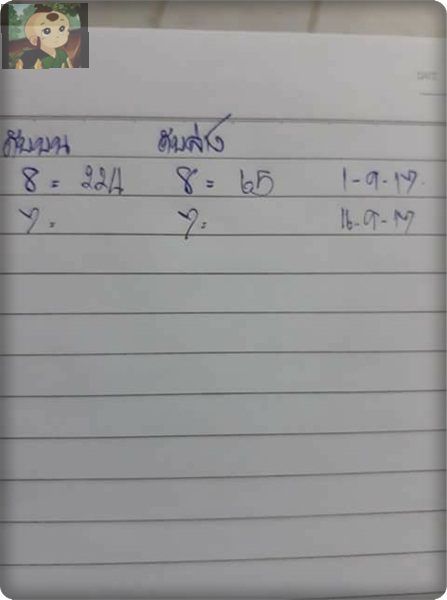 ดับบน ดับล่าง
8 = 224 8 = 65 1-9-17
7 = 7 = 16-9-17